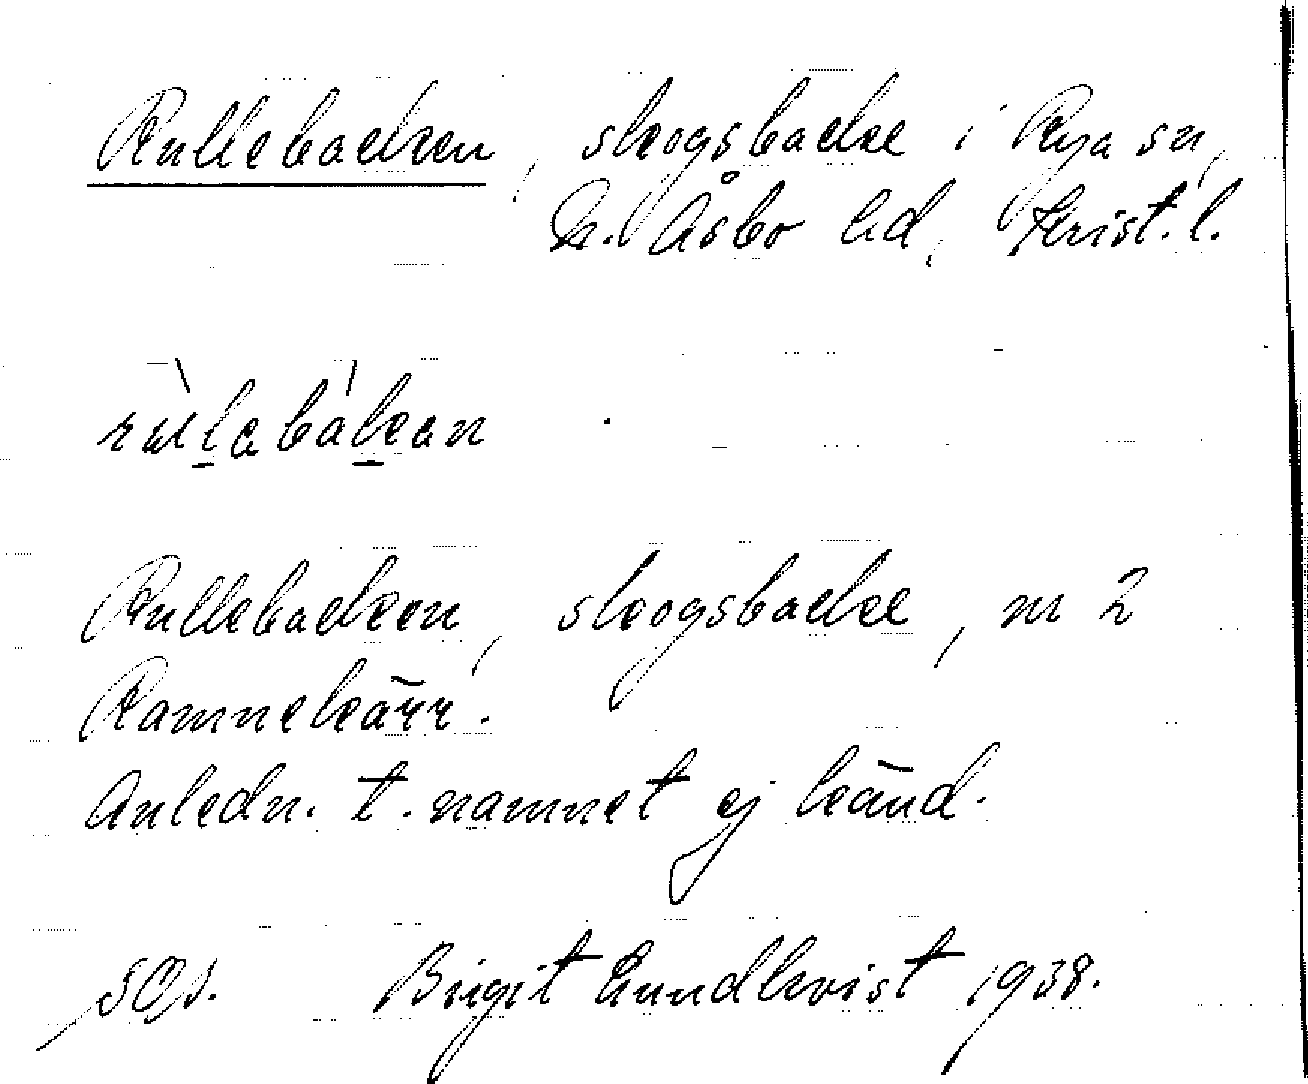 Rullebacken, skogsbacke i Rya sn,
N. Åsbo hd, Krist. l.
rulebakan
Rullebacken, skogsbacke, nr 2
Ramnekärr.
Anledn. t. namnet ej känd.
SOJ. Birgit Lundkvist 1938.